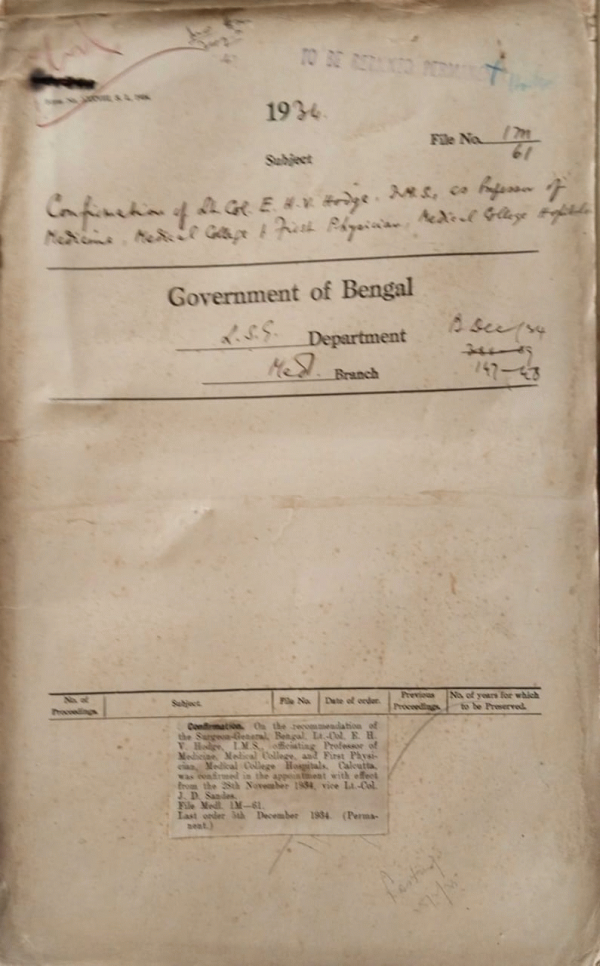 TO BE RETAINED PERMANENTLY
1934.
File No. 1M
61
Subject
Confirmation of Lt. Col. E. H. V. Hodge, I.M.S., as Professor of
Medicine, Medical College & First Physician, Medical College Hospitals
Government of Bengal
L.S.G. Department
B Dec/34
Med. Branch
147-48
No. of Proceedings.
Subject.
File No.
Date of order.
Previous Proceedings.
No. of years for which to be Preserved.
Confirmation. On the recommendation of
the Surgeon-General, Bengal, Lt.-Col. E. H.
V. Hodge, I.M.S., officiating Professor of
Medicine, Medical College, and First Physi-
cian, Medical College Hospitals, Calcutta,
was confirmed in the appointment with effect
from the 28th November 1934, vice Lt.-Col.
J. D. Sandes.
File Medl. 1M—61.
Last order 5th December 1934. (Perma-
nent.)